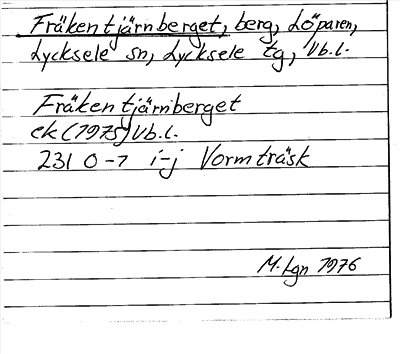 Fräkentjärnberget, berg, Löparen,
Lycksele sn, Lycksele tg, Vb.l.
Fräkentjärnberget
ek (1975) Vb.l.
231 0-7 i-j Vormträsk
M. Lgn 1976